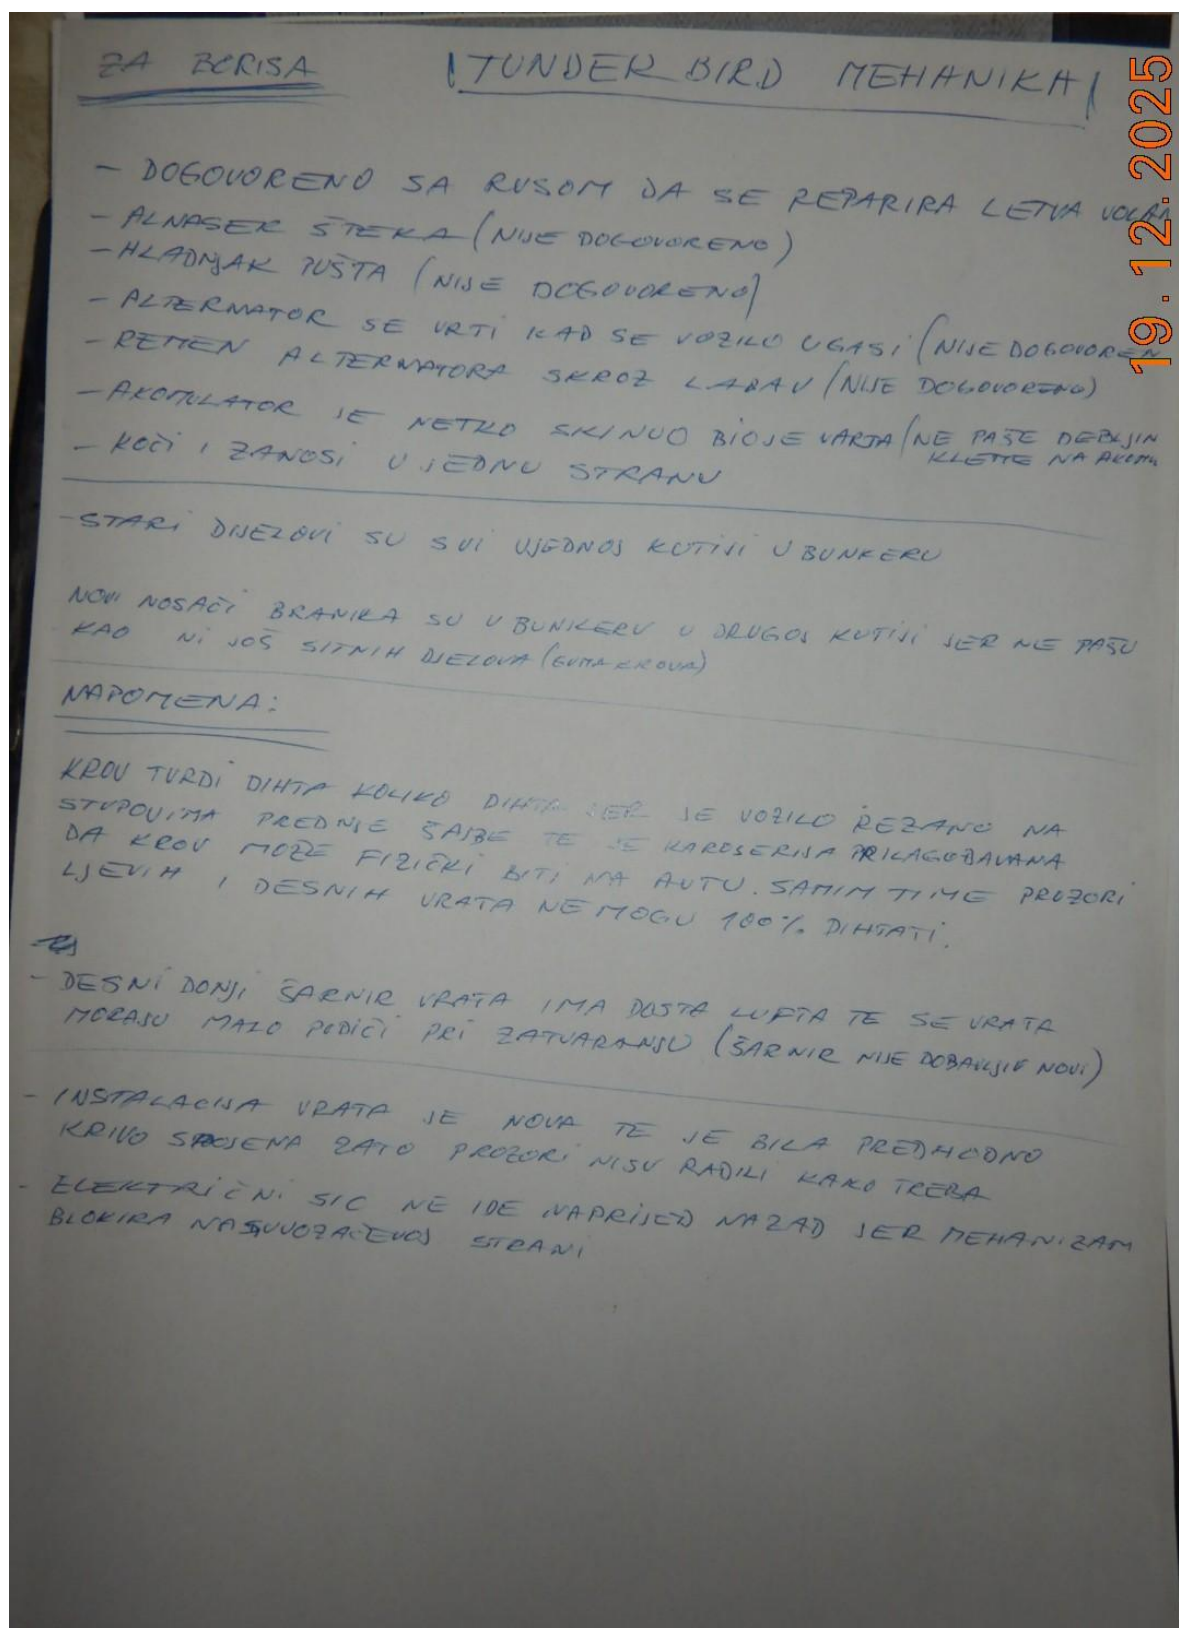 ZA BORISA
TUNDER BIRD MEHANIKA
19.12.2025
- DOGOVORENO SA RUSOM DA SE REPARIRA LETVA VOLAN
- ALNASER ŠTEKA (NIJE DOGOVORENO)
- HLADNJAK PUŠTA (NIJE DOGOVORENO)
- ALTERNATOR SE VRTI KAD SE VOZILO UGASI (NIJE DOGOVOREN
- REMEN ALTERNATORA SKROZ LABAV (NIJE DOGOVORENO)
- AKOMULATOR JE NETKO SKINUO BIO JE VARTA (NE PAŠE DEBLJIN
KLEME NA AKOMU
- KOČI I ZANOSI U JEDNU STRANU
- STARI DIJELOVI SU SVI UJEDNOJ KUTIJI U BUNKERU
NOVI NOSAČI BRANIKA SU U BUNKERU U DRUGOJ KUTIJI JER NE PAŠU
KAO NI JOŠ SITNIH DJELOVA (GUMA KROVA)
NAPOMENA:
KROV TVRDI DIHTA KOLIKO DIHTA JER JE VOZILO REZANO NA
STUPOVIMA PREDNJE ŠAJBE TE JE KAROSERIJA PRILAGOĐAVANA
DA KROV MOŽE FIZIČKI BITI NA AUTU. SAMIM TIME PROZORI
LJEVIH I DESNIH VRATA NE MOGU 100% DIHTATI.
- DESNI DONJI ŠARNIR VRATA IMA DOSTA LUFTA TE SE VRATA
MORAJU MALO PODIČI PRI ZATVARANJU (ŠARNIR NIJE DOBAVLJIV NOVI)
- INSTALACIJA VRATA JE NOVA TE JE BILA PREDHODNO
KRIVO SPOJENA ZATO PROZORI NISU RADILI KAKO TREBA
- ELEKTRIČNI SIC NE IDE NAPRIJED NAZAD JER MEHANIZAM
BLOKIRA NA SUVOZAČEVOJ STRANI